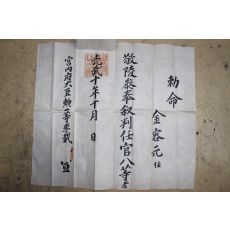 勅命
金容元任
敬陵參奉叙判任官八等者
光武十年十月 日
宮內府大臣勲一等李載 宣